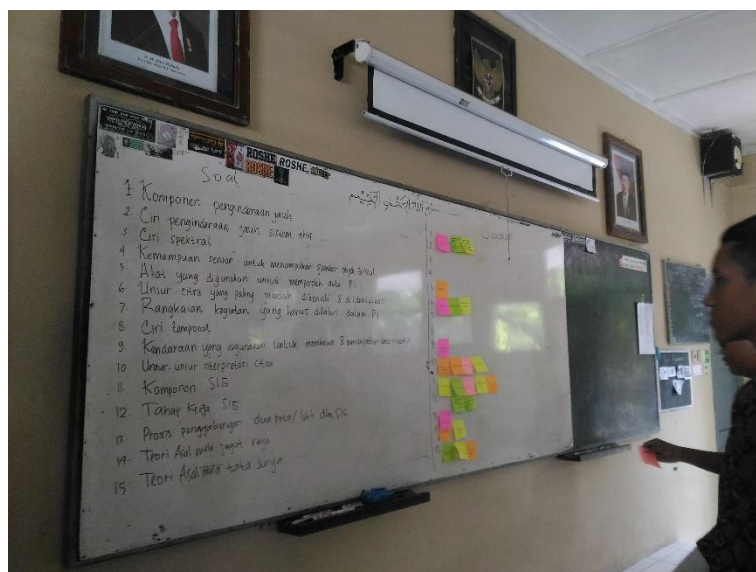 ROSHE ROSHE
ROSHE
Soal
1 Komponen penginderaan jauh
2 Ciri penginderaan jauh sistem aktif
3 Ciri spektral
4 Kemampuan sensor untuk menampakan gambar objek terkecil
5 Alat yang digunakan untuk memperoleh data PJ
6 Unsur citra yang paling mudah dikenali & diidentifikasi
7 Rangkaian kegiatan yang harus dilalui dalam PJ
8 Ciri temporal
9 Kendaraan yang digunakan untuk membawa &
10 Unsur-unsur interpretasi citra
11 Komponen SIG
12. Tahap Kerja SIG
13 Proses penggabungan dua peta/lebih dlm SIG
14. Teori Asal mula jagat raya
15. Teori Asal mula tata surya